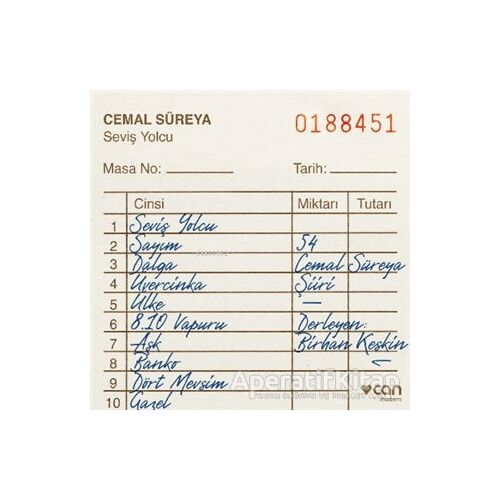 CEMAL SÜREYA
Seviş Yolcu
0188451
Masa No:
Tarih:
Cinsi Miktarı Tutarı
1 Seviş Yolcu
2 Sayım 54
3 Dalga Cemal Süreya
4 Üvercinka Şiiri
5 Ülke —
6 8.10 Vapuru Derleyen:
7 Aşk Birhan Keskin
8 Banko
9 Dört Mevsim
10 Gazel
Aperatifkitap
can
modern